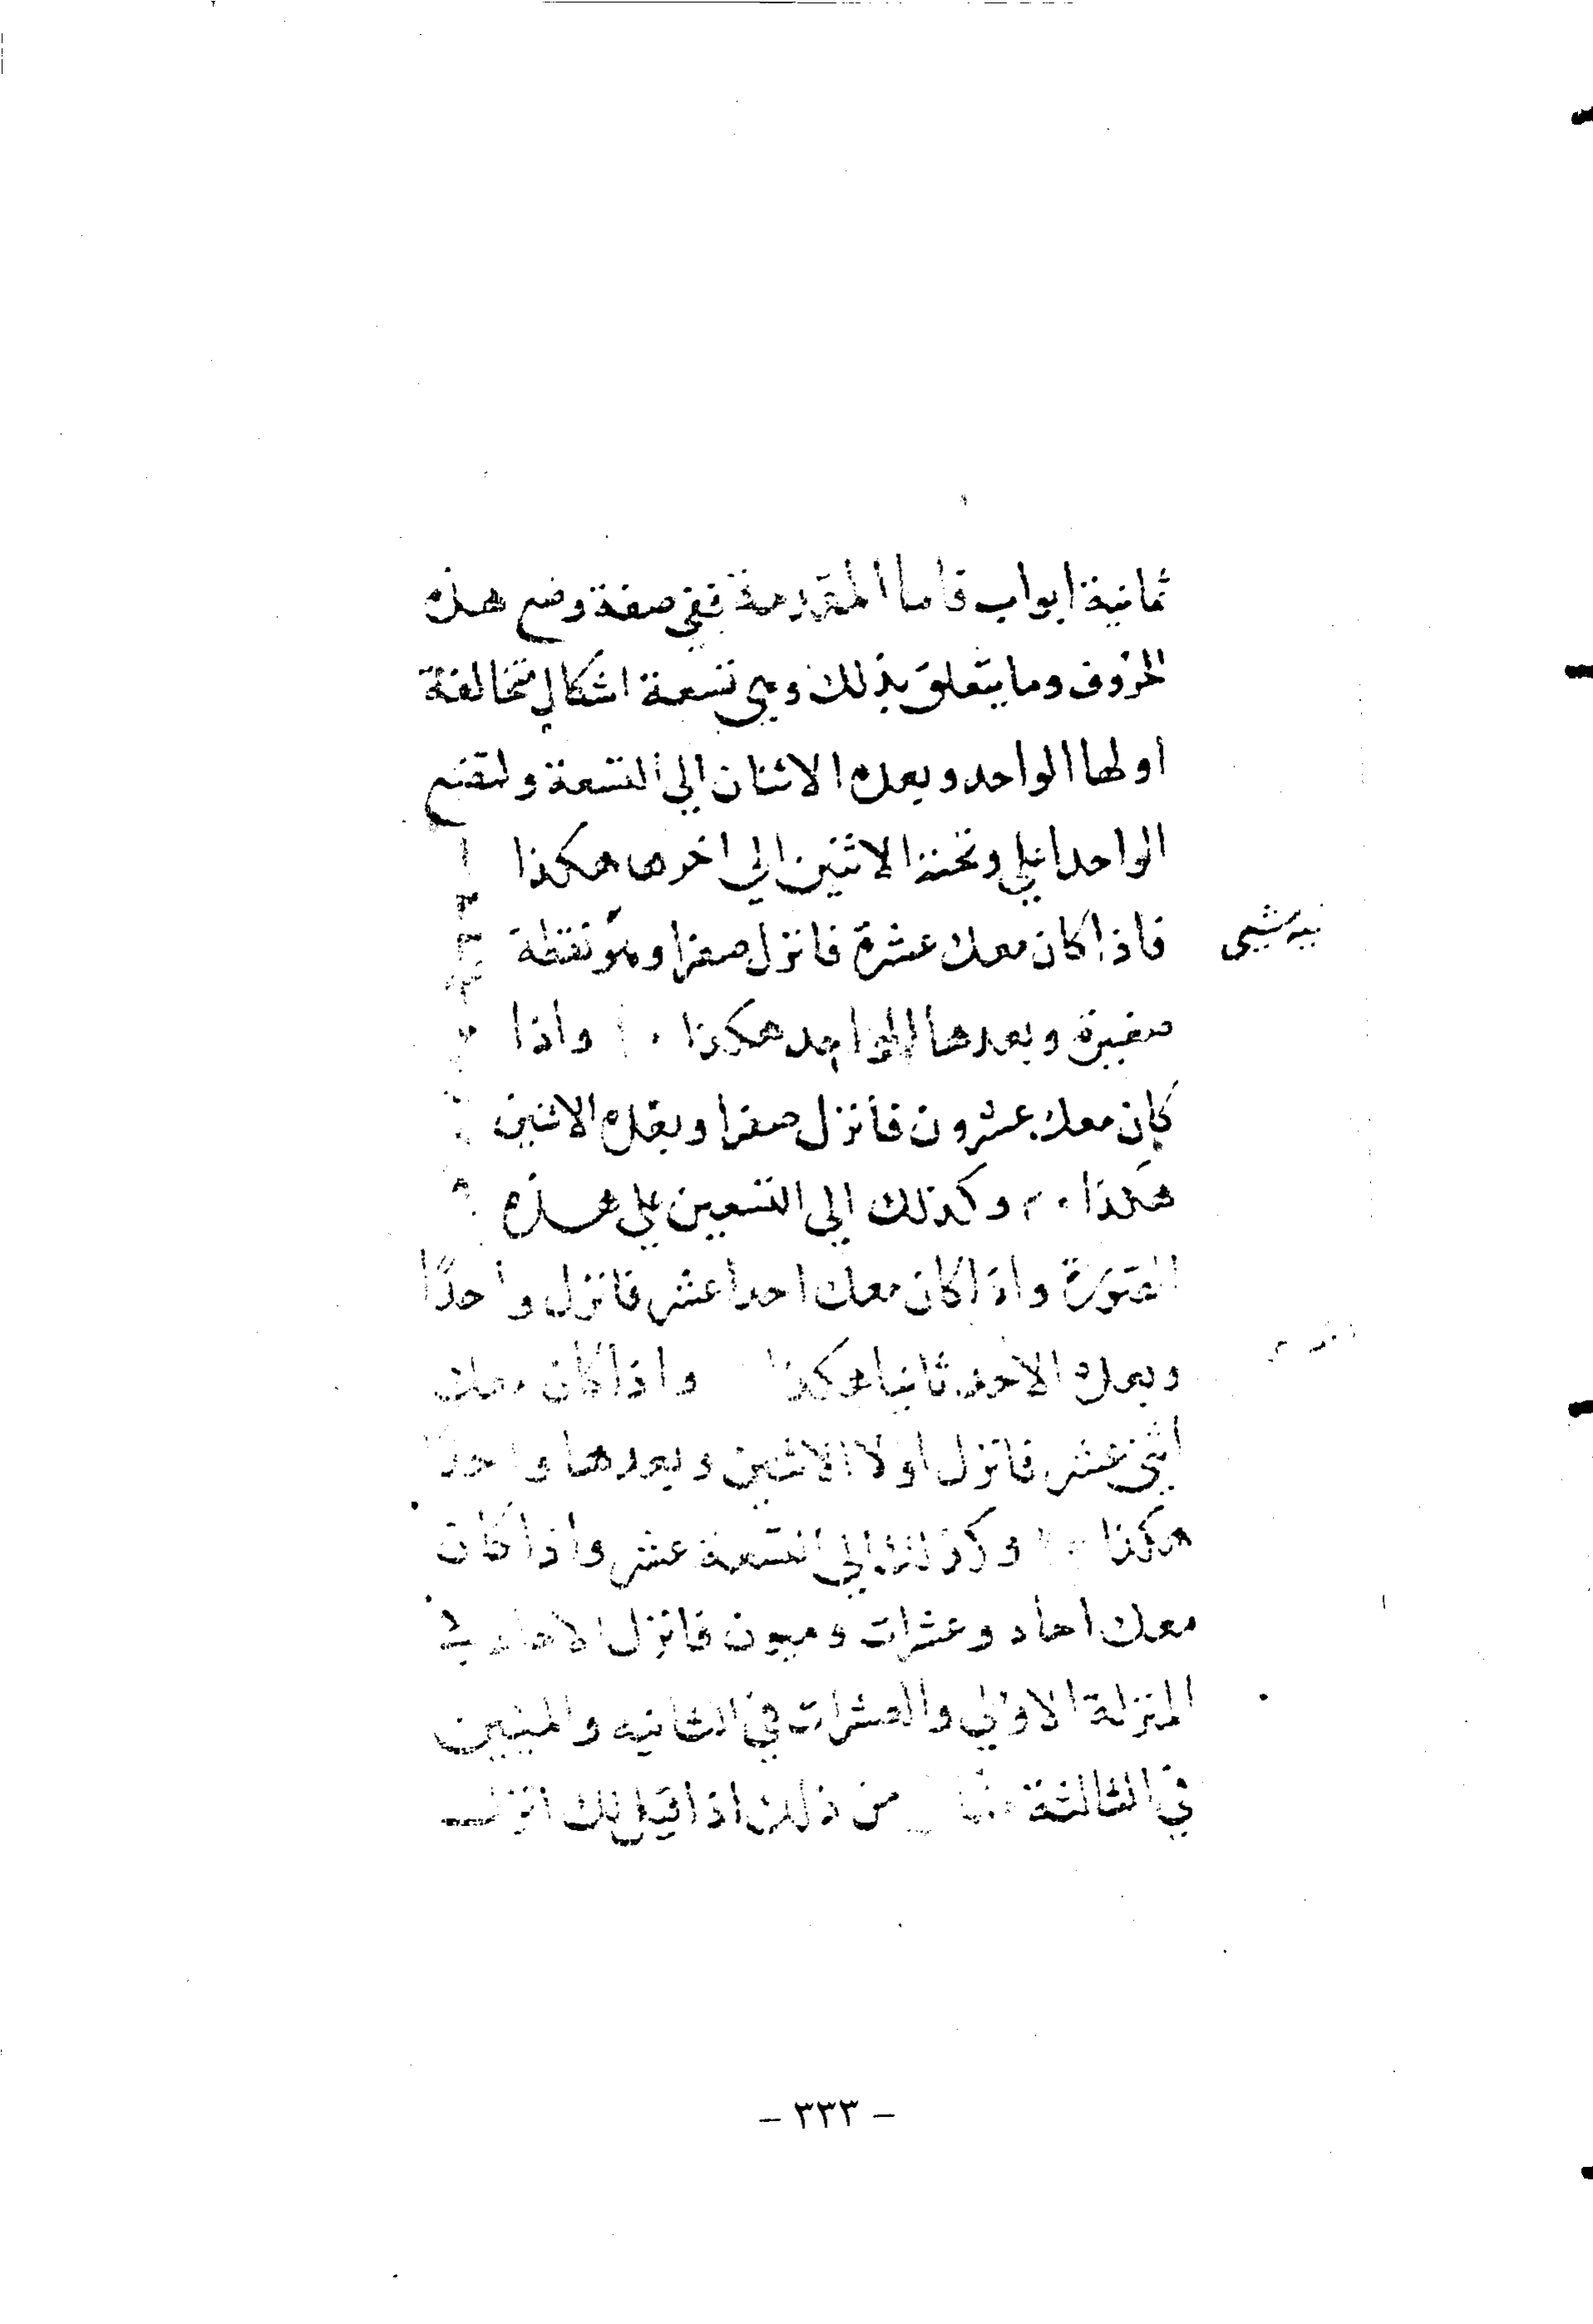 ثمانية ابواب فاما المقدمة ففي صفة وضع هذه
الحروف وما يتعلق بذلك وهي تسعة اشكال متخالفة
اولها الواحد وبعده الاثنان الي التسعة ولتضع
الواحد اعلي وتحته الاثنين الي اخرها هكذا
فاذا كان معك عشرة فانزل صفرا وهو نقطة
صغيرة وبعدها الواحد هكذا ٠١ واذا
كان معك عشرون فانزل صفرا وبعده الاثنين
هكذا ٠٢ وكذلك الي التسعين علي هذه
الصورة واذا كان معك احدا عشر فانزل واحدًا
وبعده الاحد ثانيا هكذا واذا كان معك
اثني عشر فانزل اولا الاثنين وبعدها واحدًا
هكذا وكذلك الي التسعة عشر واذا كان
معك احاد وعشرات وميون فانزل الاحاد في
المنزلة الاولي والعشرات في الثانيه والميين
في الثالثة من ذلك اذا قيل لك انزل
- ٣٣٣ -